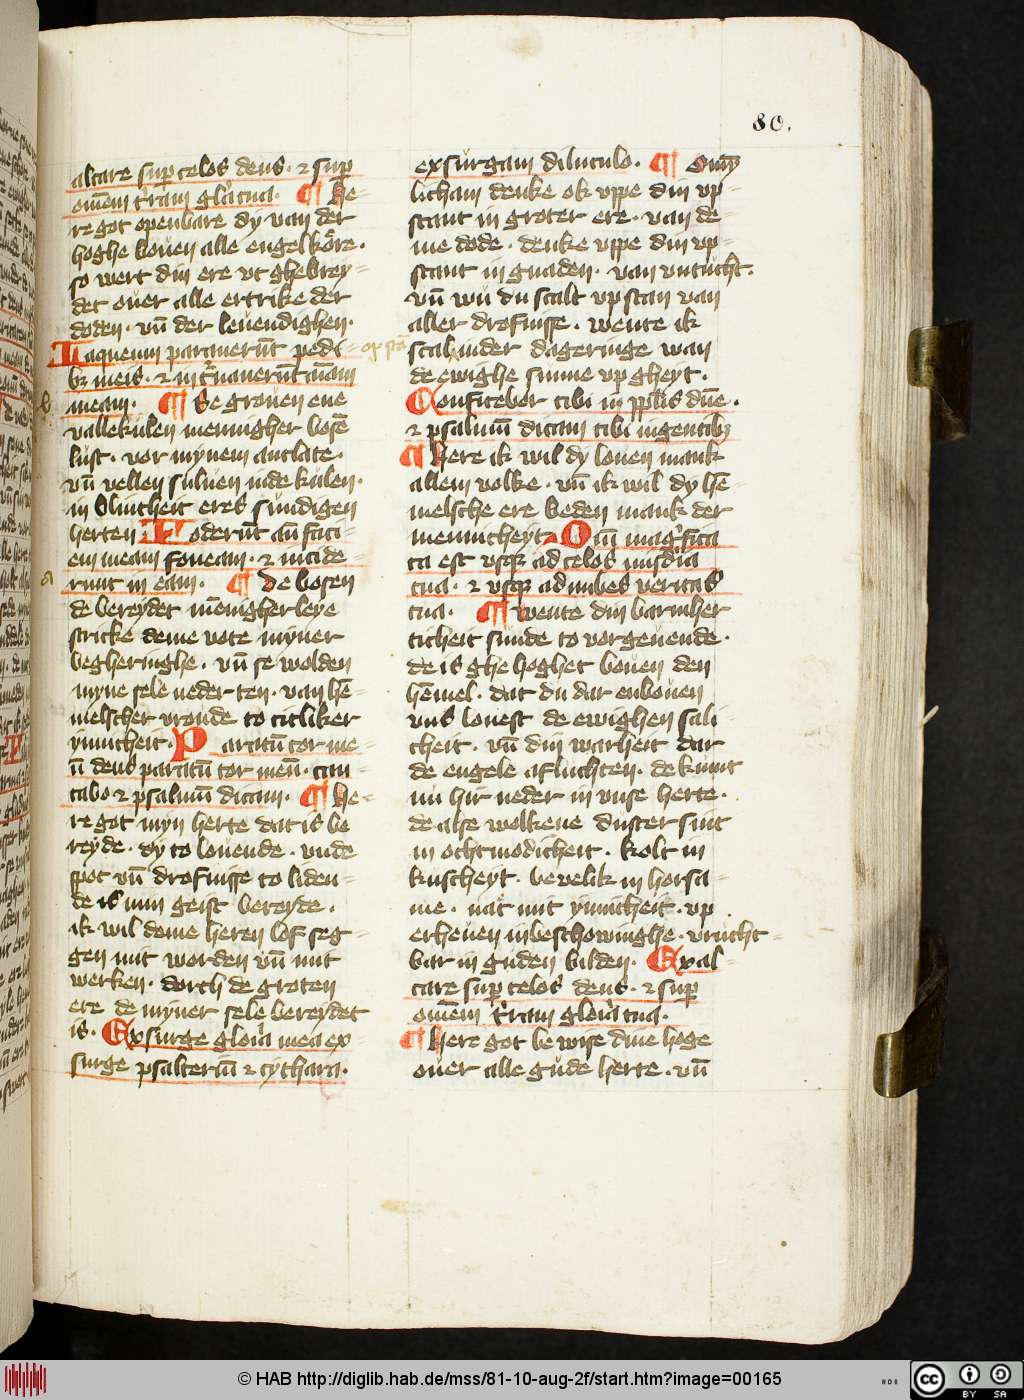 80.
altare sup celos deus · ⁊ sup
om̄em t'ram glā tua · ¶ He-
re got openbare dy van der
hoghe bouen alle engelkore ·
so wert din ere vt ghebrey-
det ouer alle ertrike der
doden · vn̄ der leuendighen ·
Laqueum parauerūt pedi-
bꝫ meis · ⁊ incuauerūt aīam
meam · ¶ Se grouen ene
vallekulen mennigher bosē
lust · vor mynem antlate ·
vn̄ vellen suluen inde kulen ·
in blintheit eres sundigen
herten Foderūt an̄ faci-
em meam foueam · ⁊ incide-
runt in eam · ¶ De bosen
de bereydet mēnigherleye
stricke deme vote myner
begheringhe · vn̄ se wolden
myne sele neder ten · van hē-
melscher vronde to titliker
ynnicheit · Paratū cor me-
ū deus paratū cor meū · can-
tabo ⁊ psalmū dicam · ¶ He-
re got myn herte dat is be
reyde · dy to louende · vnde
spot vn̄ drofnisse to liden-
de is min geist bereyde ·
ik wil deme heren lof seg-
gen mit worden vn̄ mit
werken · dorch de groten
ere de myner sele bereydet
is · Exsurge glōia mea ex
surge psalteriū ⁊ cythara ·
exsurgam diluculo · ¶ O my
licham denke ok vppe din vp-
stant in groter ere · van de-
me dode · denke vppe din vp-
stant in gnaden · van vntucht ·
vn̄ wu du scalt vpstan van
aller drofnisse · wente ik
scal in der dageringe wan
de ewighe sunne vp gheyt ·
Confitebor tibi in pplis dn̄e ·
⁊ psalmū dicam tibi in gentibꝫ
¶ Here ik wil dy louen mank
allem volke · vn̄ ik wil dy hē-
melsche ere beden mank der
mennicheyt Qm̄ mag'fica
ta est vsqꝫ ad celos mis'dia
tua · ⁊ vsqꝫ ad nubes veritas
tua · ¶ Wente din barmher
ticheit sunde to vorgeuende ·
de is ghe hoghet bouen den
hēmel · dat du dar enbouen
vns louest de ewighen sali
cheit · vn̄ din warheit dar
de engele af luchten · de kumt
nu hir neder in vnse herte ·
de alse wolkene duster sint
in othmodicheit · kolt in
kuscheyt · bevelik in horsa-
me · nat mit ynnicheit · vp
erheuen in beschowinghe · vrucht-
bar in guden bilden · Exal-
tare sup celos deus · ⁊ sup
om̄em t'ram glōia tua ·
¶ Here got be wise dine hoge
ouer alle gude herte · vn̄
© HAB http://diglib.hab.de/mss/81-10-aug-2f/start.htm?image=00165
HAB
cc BY SA